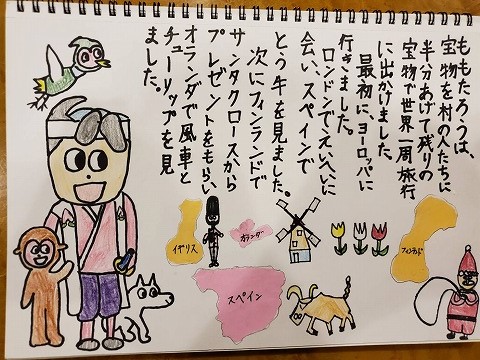 ももたろうは、
宝物を村の人たちに
半分あげて残りの
宝物で世界一周旅行
に出かけました
最初に、ヨーロッパに
行きました。
ロンドンでえいへいに
会い、スペインで
とう牛を見ました。
次にフィンランドで
サンタクロースから
プレゼントをもらい
オランダで風車と
チューリップを見
ました。
イギリス
オランダ
フィンランド
スペイン